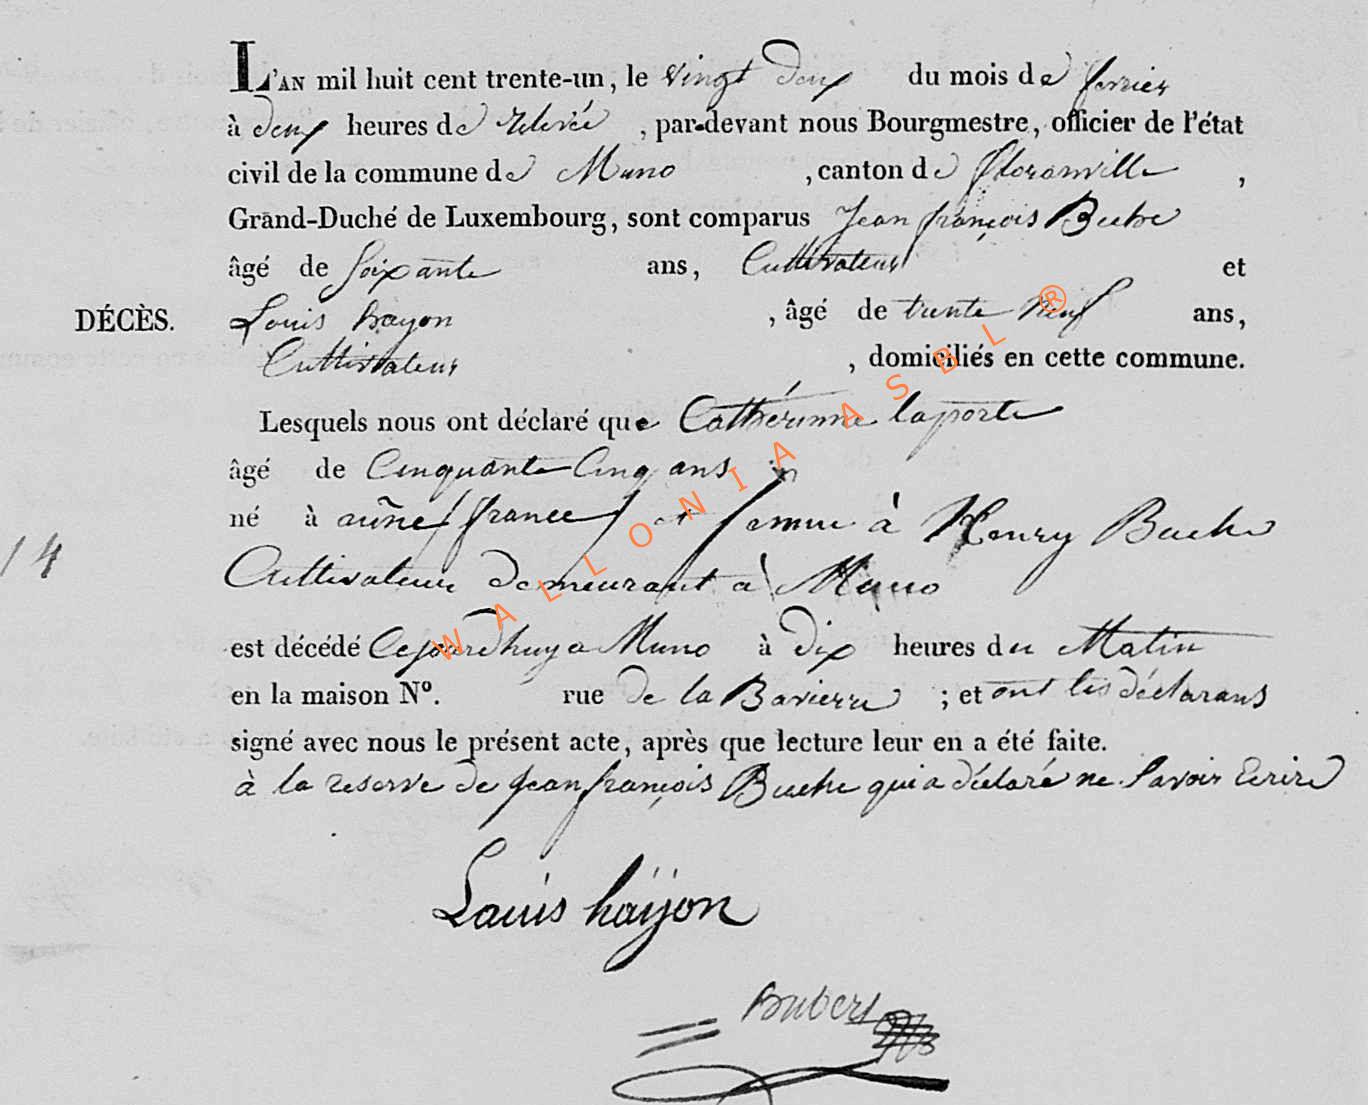 L'AN mil huit cent trente-un, le vingt deux du mois de fevrier
à deux heures de relevée, par-devant nous Bourgmestre, officier de l'état
civil de la commune de Muno, canton de floranville,
Grand-Duché de Luxembourg, sont comparus Jean françois Buche
âgé de soixante ans, Cultivateur et
Louis hayon, âgé de trente neuf ans,
DÉCÈS.
Cultivateur, domiciliés en cette commune.
Lesquels nous ont déclaré que Cathérinne laporte
âgé de Cinquante Cinq ans
né à france et femme à Henry Buche
14
Cultivateur demeurant a Muno
est décédé Cejourdhuy a Muno à dix heures du Matin
en la maison N°. rue de la Bavierre; et ont les déclarans
signé avec nous le présent acte, après que lecture leur en a été faite.
à la reserve de jean françois Buche qui a déclaré ne Savoir Ecrire
Louis haÿon
WALLONIA ASBL ®